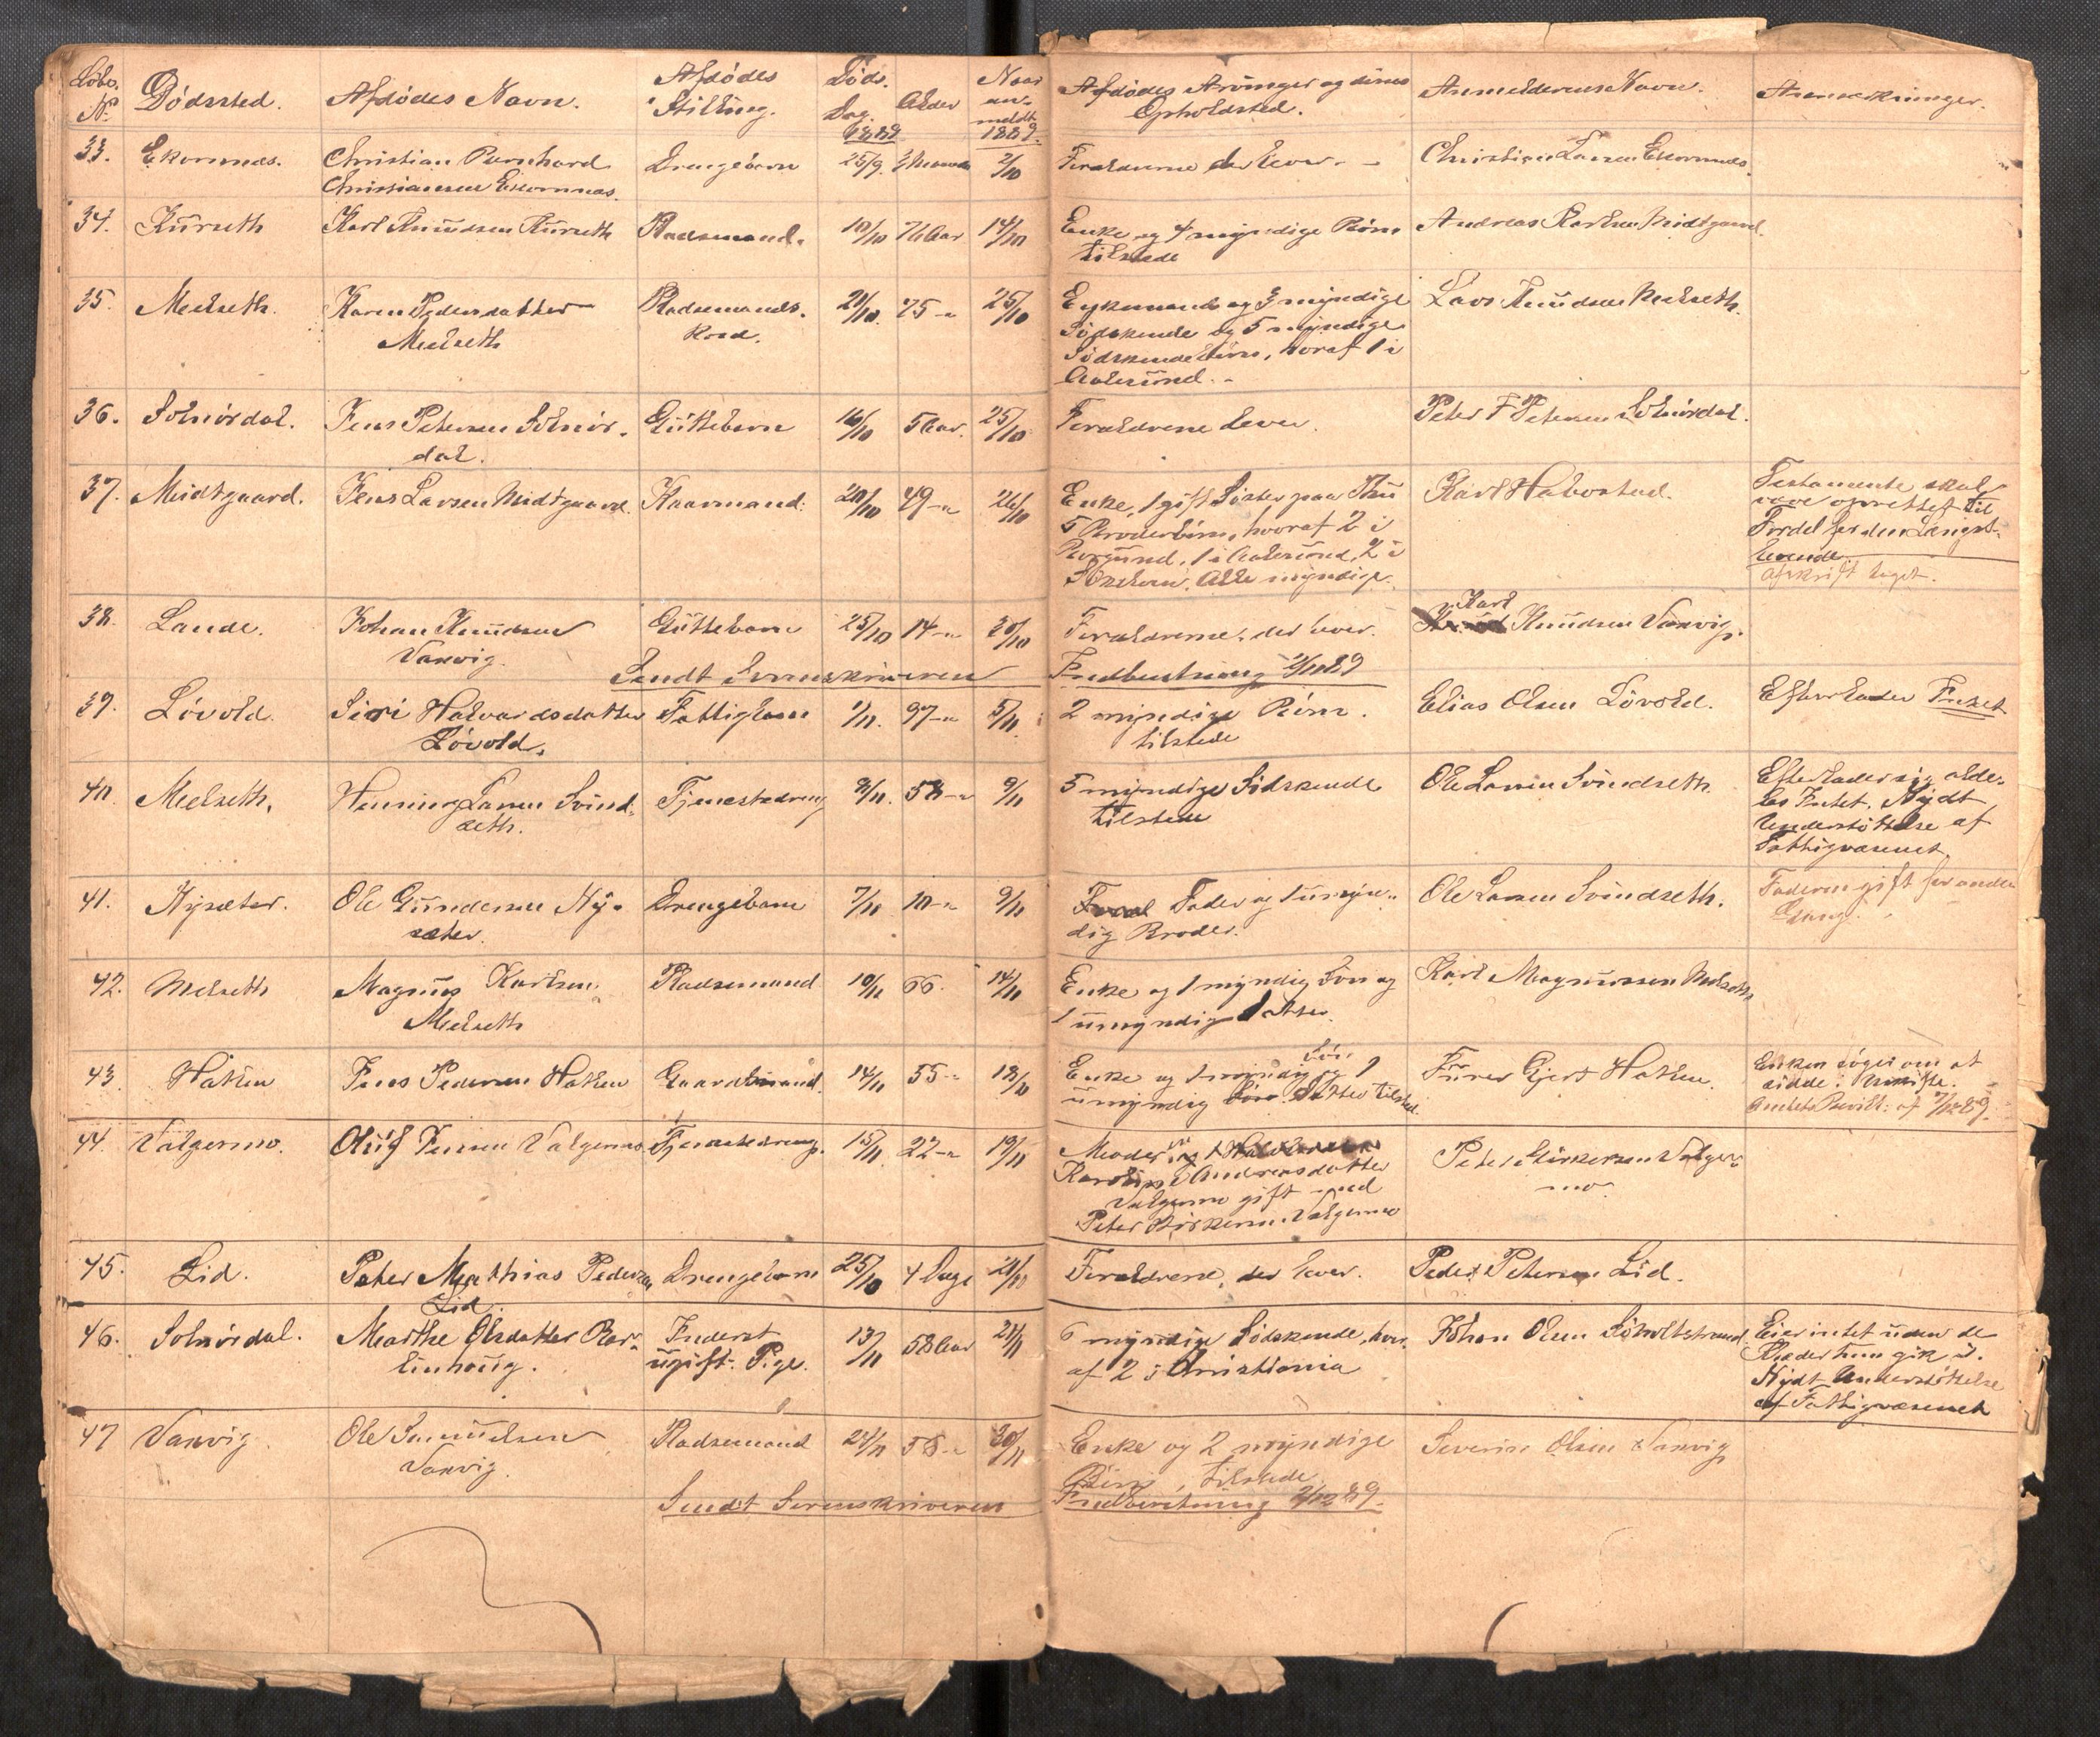 Løbe. Nº
Dødssted.
Afdødes Navn.
Afdødes Stilling.
Døds. Dag. 1889
Alder
Naar anmeldt 1889.
Afdødes Arvinger og disses Opholdsted.
Anmelderens Navn.
Anmerkninger.
33. Ekornnæs. Christian Bernhard Drengebarn 25/9. 2/10 Forældrene der lever. - Christian Larsen Ekornnæs
Christiansen Ekornnæs.
34. Kurseth Karl Knudsen Kurseth Pladsemand. 10/10 76 Aar 14/10 Enke og 4 myndige Børn Andreas Karlsen Midtgaard.
tilstede
35. Melseth. Karen Pedersdatter Pladsemands. 21/10. 75 -"- 25/10 Enkemand og 3 myndige Lars Knudsen Melseth.
Melseth Kone. Sødskende og 5 myndige
Sødskendebørn, horaf 1 i
Aalesund. -
36. Solnørdal. Jens Petersen Solnør- Guttebarn 16/10 5 Aar. 25/10 Forældrene lever. Peter F Petersen Solnørdal.
dal.
37. Midtgaard. Jens Larsen Midtgaard. Kaarmand. 20/10 49 -"- 26/10 Enke, 1 gift Søster paa Karl Haberstad. Testamente skal
5 Broderbørn, hvoraf 2 i være oprettet til
Borgund, 1 i Aalesund, 2 i Fordel for den Længst-
Alle myndige. levende.
Afskrift taget.
38. Lande. Johan Knudsen Guttebarn 25/10 14 -"- 30/10 Forældrene, der lever. Karl Knudsen Vaxvig.
Vaxvig.
Sendt Sorenskriveren Indberetning 2/11 89
39. Løvold. Siri Halvardsdatter Fattiglem 1/11. 97 -"- 5/11. 2 myndige Børn. Elias Olsen Løvold. Efterlader Intet
Løvold. tilstede
40. Melseth. Henning Larsen Svind- Tjenestedreng 8/11. 58 -"- 9/11 5 myndige Sødskende Ole Larsen Svindseth. Efterlader sig alde-
seth. tilstede les Intet. Nydt
Understøttelse af
Fattigvæsenet.
41. Nysæter. Ole Gundersen Ny- Drengebarn 7/11 10 -"- 9/11 Fader og 1 umyn- Ole Larsen Svindseth. Faderen gift for anden
sæter. dig Broder. Gang.
42. Melseth Magnus Karlsen Pladsemand 10/11 66. 14/11 Enke og 1 myndig Søn og Karl Magnussen Melseth
Melseth 1 umyndig Datter.
43. Hatlen Jens Pedersen Hatlen Gaardmand. 14/11 55 -"- 18/11 Enke og 1 myndig Søn og 1 Gjert Hatlen. Enken søger om at
umyndig Datter tilsted. sidde i Uskifte.
Amtets Bevill: af 7/12 89.
44. Valgermo. Oluf Jensen Valgermo Tjenestedreng. 15/11 22 -"- 19/11 Moder Peter Stirkersen Valger-
Karoline Andreasdatter mo.
Valgermo gift med
Peter Stirkersen Valgermo
45. Lid. Peter Mathias Pedersen Drengebarn 25/10 4 Dage Forældrene, der lever. Peder Petersen Lid.
Lid.
46. Solnørdal. Marthe Olsdatter Inderst 13/11 58 Aar 21/11 6 myndige Sødskende, hvor- Johan Olsen Sjøholtstrand. Eier intet uden de
ugift. Pige. af 2 i Christiania Klæder hun gik i.
Nydt Understøttelse
af Fattigvæsenet
47 Vaxvig. Ole Samuelsen Pladsemand 24/11 58 -"- 30/11 Enke og 2 myndige Severin Olsen Vaxvig
Vaxvig. Børn, tilstede.
Sendt Sorenskriveren Indberetning 2/12 89.